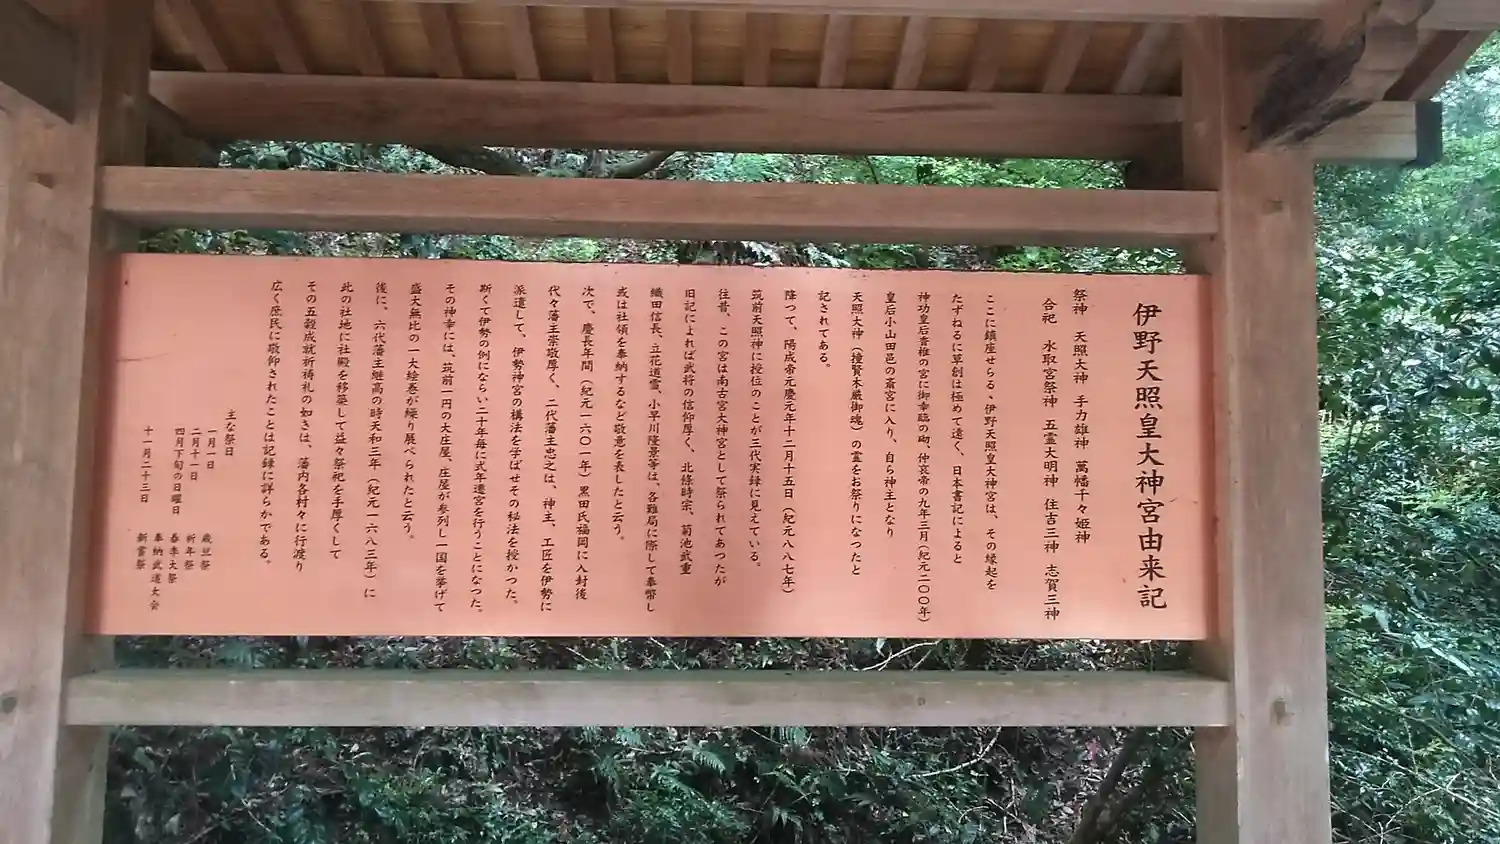 伊野天照皇大神宮由来記
祭神　天照大神　手力雄神　萬幡千々姫神
合祀　水取宮祭神　五霊大明神　住吉三神　志賀三神
ここに鎮座せらるゝ伊野天照皇大神宮は、その縁起を
たずねるに草創は極めて遠く、日本書記によると
神功皇后香椎の宮に御幸臨の砌、仲哀帝の九年三月（紀元二〇〇年）
皇后小山田邑の斎宮に入り、自ら神主となり
天照大神（撞賢木厳御魂）の霊をお祭りになつたと
記されてある。
降つて、陽成帝元慶元年十二月十五日（紀元八八七年）
筑前天照神に授位のことが三代実録に見えている。
往昔、この宮は南古宮大神宮として祭られてあつたが
旧記によれば武将の信仰厚く、北條時宗、菊池武重
織田信長、立花道雪、小早川隆景等は、各難局に際して奉幣し
或は社領を奉納するなど敬意を表したと云う。
次で、慶長年間（紀元一六〇一年）黒田氏福岡に入封後
代々藩主崇敬厚く、二代藩主忠之は、神主、工匠を伊勢に
派遣して、伊勢神宮の構法を学ばせその秘法を授かつた。
斯くて伊勢の例にならい二十年毎に式年遷宮を行うことになつた。
その神幸には、筑前一円の大庄屋、庄屋が参列し一国を挙げて
盛大無比の一大絵巻が繰り展べられたと云う。
後に、六代藩主継高の時天和三年（紀元一六八三年）に
此の社地に社殿を移築して益々祭祀を手厚くして
その五穀成就祈祷礼の如きは、藩内各村々に行渡り
広く庶民に敬仰されたことは記録に詳らかである。
主な祭日
一月一日　歳旦祭
二月十一日　祈年祭
四月下旬の日曜日　春季大祭
奉納武道大会
十一月二十三日　新嘗祭